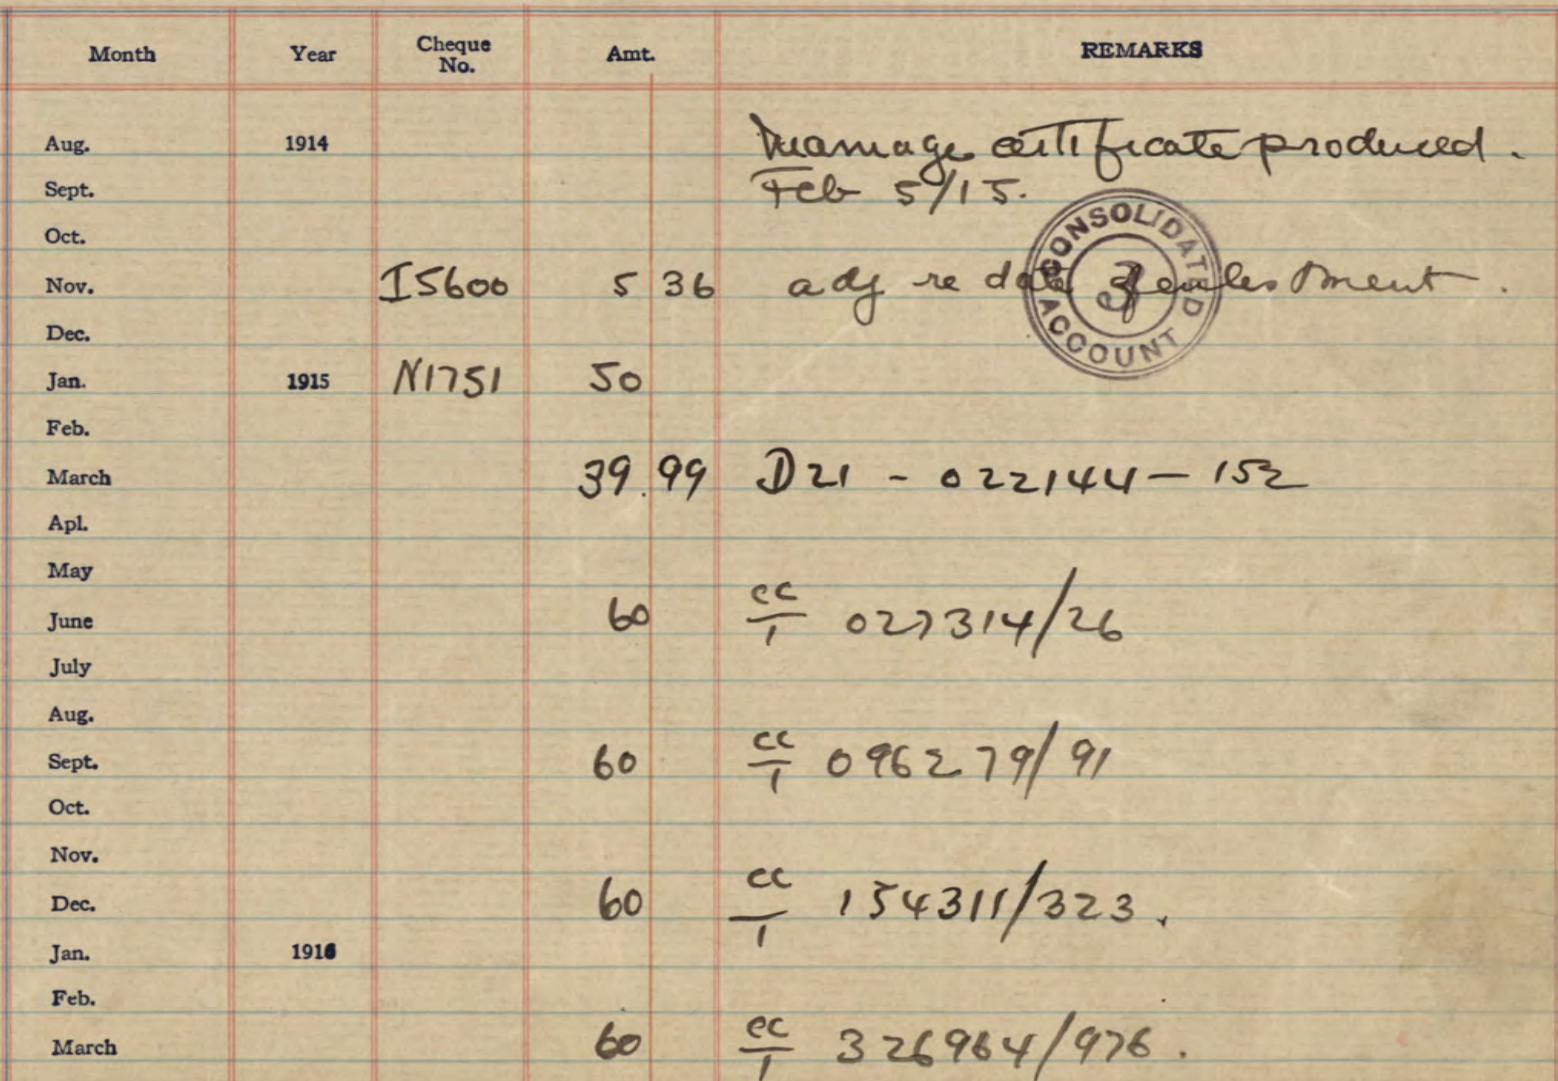 Month Year Cheque No. Amt. REMARKS
Aug. 1914 Marriage certificate produced.
Sept. Feb 5/15.
Oct.
CONSOLIDATED ACCOUNT 3
Nov. I5600 5 36 adj re date of enlestment.
Dec.
Jan. 1915 N1751 50
Feb.
March 39.99 D21 - 022144 - 152
Apl.
May
June 60 cc/1 027314/26
July
Aug.
Sept. 60 cc/1 096279/91
Oct.
Nov.
Dec. 60 cc/1 154311/323.
Jan. 1916
Feb.
March 60 cc/1 326964/976.